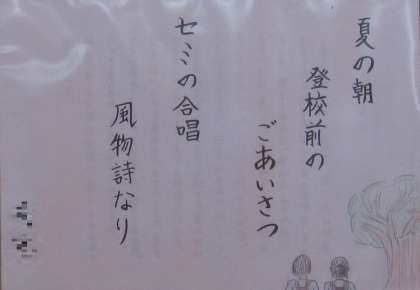 夏の朝
登校前の
ごあいさつ
セミの合唱
風物詩なり